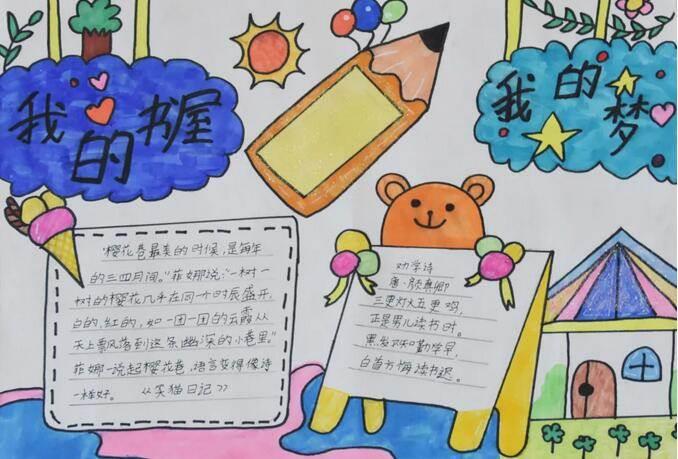 我的书屋
我的梦
"樱花巷最美的时候,是每年
的三四月间。"菲娜说:"一树一
树的樱花几乎在同一个时辰盛开,
白的,红的,如一团一团的云霞从
天上飘落到这条幽深的小巷里。"
菲娜一说起樱花巷,语言变得像诗
一样好。 《笑猫日记》
劝学诗
唐·颜真卿
三更灯火五更鸡,
正是男儿读书时。
黑发不知勤学早,
白首方悔读书迟。